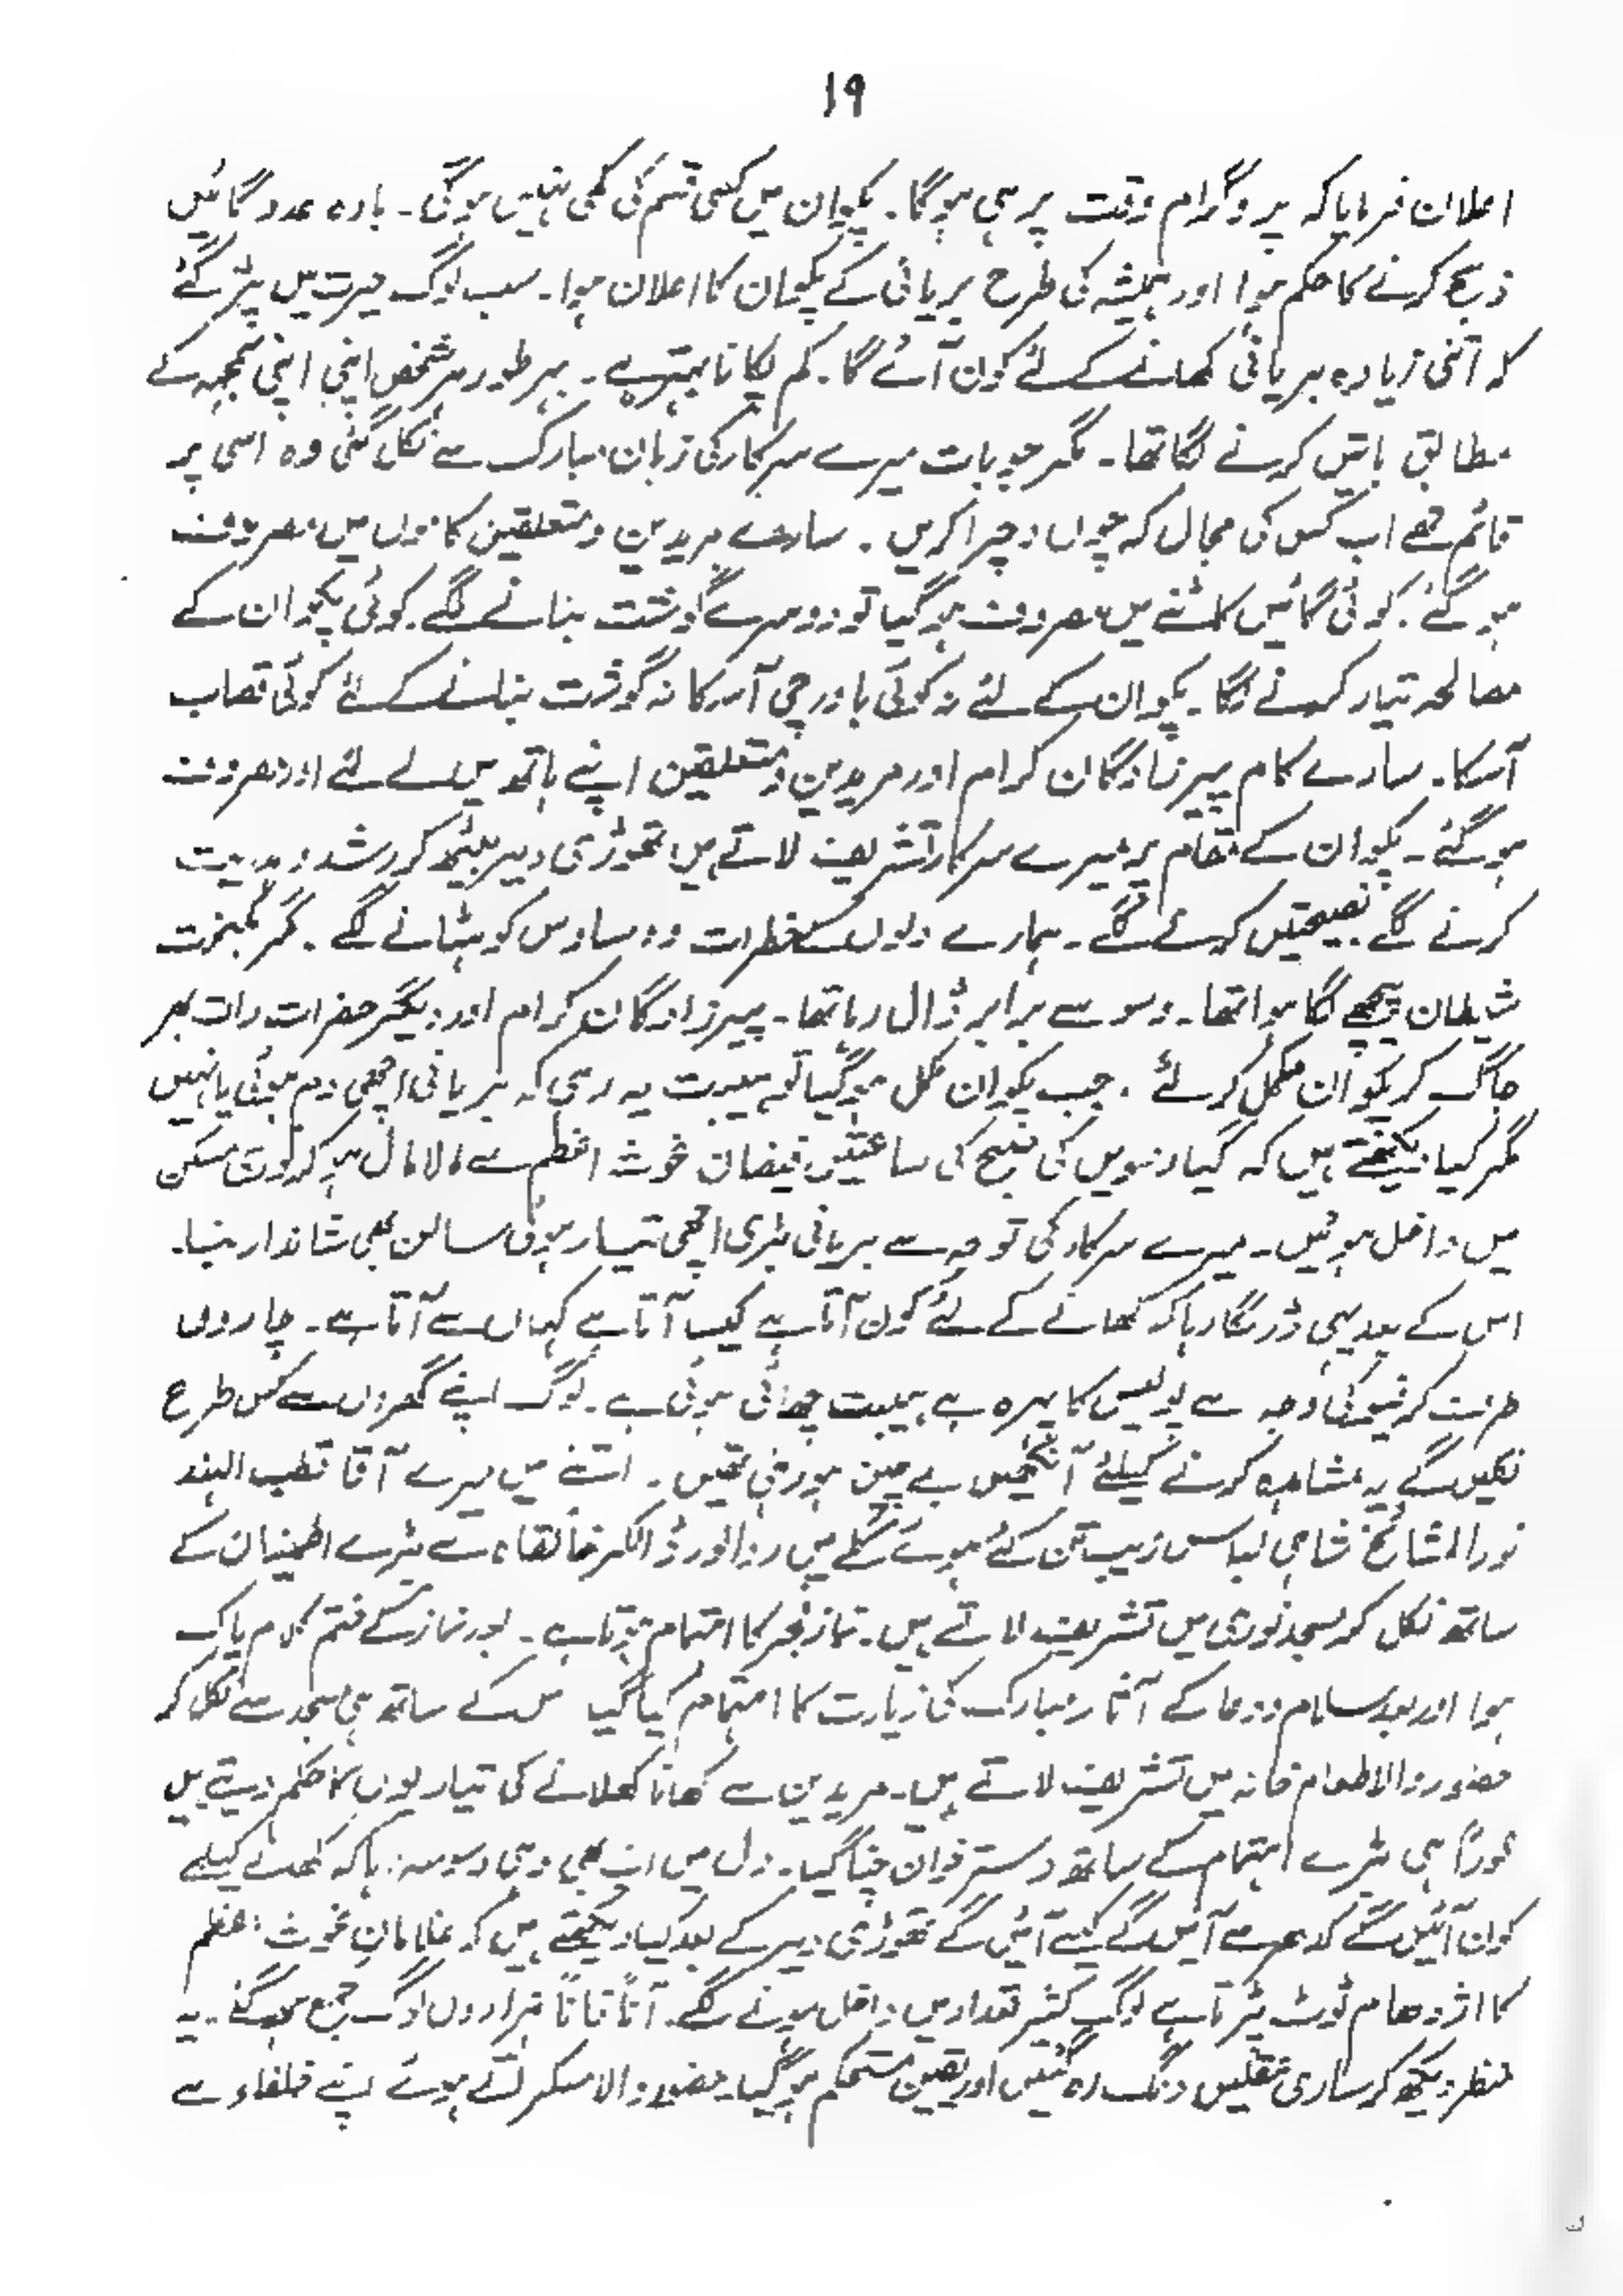 ۱۹
اعلان فرمایا کہ پروگرام وقت پر ہی ہوگا۔ پکوان میں کسی قسم کی کمی نہیں ہوگی۔ بارہ عدد گائیں
ذبح کرنے کا حکم ہوا اور ہمیشہ کی طرح بریانی کے پکوان کا اعلان ہوا۔ سب لوگ حیرت میں پڑ گئے
کہ اتنی زیادہ بریانی کھانے کے لئے کون آئے گا۔ کم پکانا بہتر ہے۔ بہر طور ہر شخص اپنی اپنی سمجھ کے
مطابق باتیں کرنے لگا تھا۔ مگر جو بات میرے سرکار کی زبان مبارک سے نکل گئی وہ اسی پر
قائم تھے اب کس کی مجال کہ چوں و چرا کریں۔ سارے مریدین و متعلقین کاموں میں مصروف
ہو گئے۔ کوئی گائیں کاٹنے میں مصروف ہو گیا تو دوسرے گوشت بنانے لگے۔ کوئی پکوان کے
مصالحہ تیار کرنے لگا۔ پکوان کے لئے نہ کوئی باورچی آسکا نہ گوشت بنانے کے لئے کوئی قصاب
آسکا۔ سارے کام پیرزادگان کرام اور مریدین و متعلقین اپنے ہاتھ میں لے لئے اور مصروف
ہو گئے۔ پکوان کے مقام پر میرے سرکار تشریف لاتے ہیں تھوڑی دیر بیٹھ کر رشد و ہدیت
کرنے لگے نصیحتیں کرنے لگے۔ ہمارے دلوں کے خطرات و وساوس کو ہٹانے لگے۔ مگر کمبخت
شیطان پیچھے لگا ہوا تھا۔ وسوسے برابر ڈال رہا تھا۔ پیرزادگان کرام اور دیگر حضرات رات بھر
جاگ کر پکوان مکمل کر لئے۔ جب پکوان مکمل ہو گیا تو ہیبت یہ رہی کہ بریانی اچھی دم ہوئی یا نہیں
مگر کیا دیکھتے ہیں کہ گیارہویں کی صبح کی ساعتیں فیضان غوث اعظم سے مالا مال ہو کر
میں داخل ہوئیں۔ میرے سرکار کی توجہ سے بریانی بڑی اچھی تیار ہوئی سالن بھی شاندار بنا۔
اس کے بعد یہی ڈر لگا رہا کہ کھانے کے لئے کون آتا ہے کیسے آتا ہے کہاں سے آتا ہے۔ چاروں
طرف کرفیو کی وجہ سے پولیس کا پہرہ ہے ہیبت چھائی ہوئی ہے۔ لوگ اپنے گھروں سے کس طرح
نکلیں گے یہ مشاہدہ کرنے کیلئے آنکھیں بے چین ہو رہی تھیں۔ اتنے میں میرے آقا قطب الہند
نورالمشائخ شاہی لباس زیب تن کئے ہوئے گلے میں ردا اور ڈالکر خانقاہ سے بڑے اطمینان کے
ساتھ نکل کر مسجد نوری میں تشریف لاتے ہیں۔ نماز فجر کا اہتمام ہوتا ہے۔ بعد نماز کے ختم کلام پاک
ہوا اور بعد سلام و دعا کے آثار مبارک کی زیارت کا اہتمام کیا گیا کے ساتھ ہی مسجد سے نکل کر
حضور والا طعام خانہ میں تشریف لاتے ہیں۔ مریدین سے کھانا کھلانے کی تیاریوں کا حکم دیتے ہیں
فوراً ہی بڑے اہتمام کے ساتھ دسترخوان چنا گیا۔ دل میں اب بھی وہی وسوسہ رہا کہ کھانے کیلئے
کون آئیں گے کدھر سے آئیں گے کیسے آئیں گے تھوڑی دیر کے بعد کیا دیکھتے ہیں کہ غلامانِ غوث اعظم
کا اژدھام ٹوٹ پڑتا ہے لوگ کثیر تعداد میں داخل ہونے لگے۔ آناً فاناً ہزاروں لوگ جمع ہو گئے۔ یہ
منظر دیکھ کر ساری عقلیں دنگ رہ گئیں اور یقین مستحکم ہو گیا۔ حضور والا مسکراتے ہوئے اپنے خلفاء سے